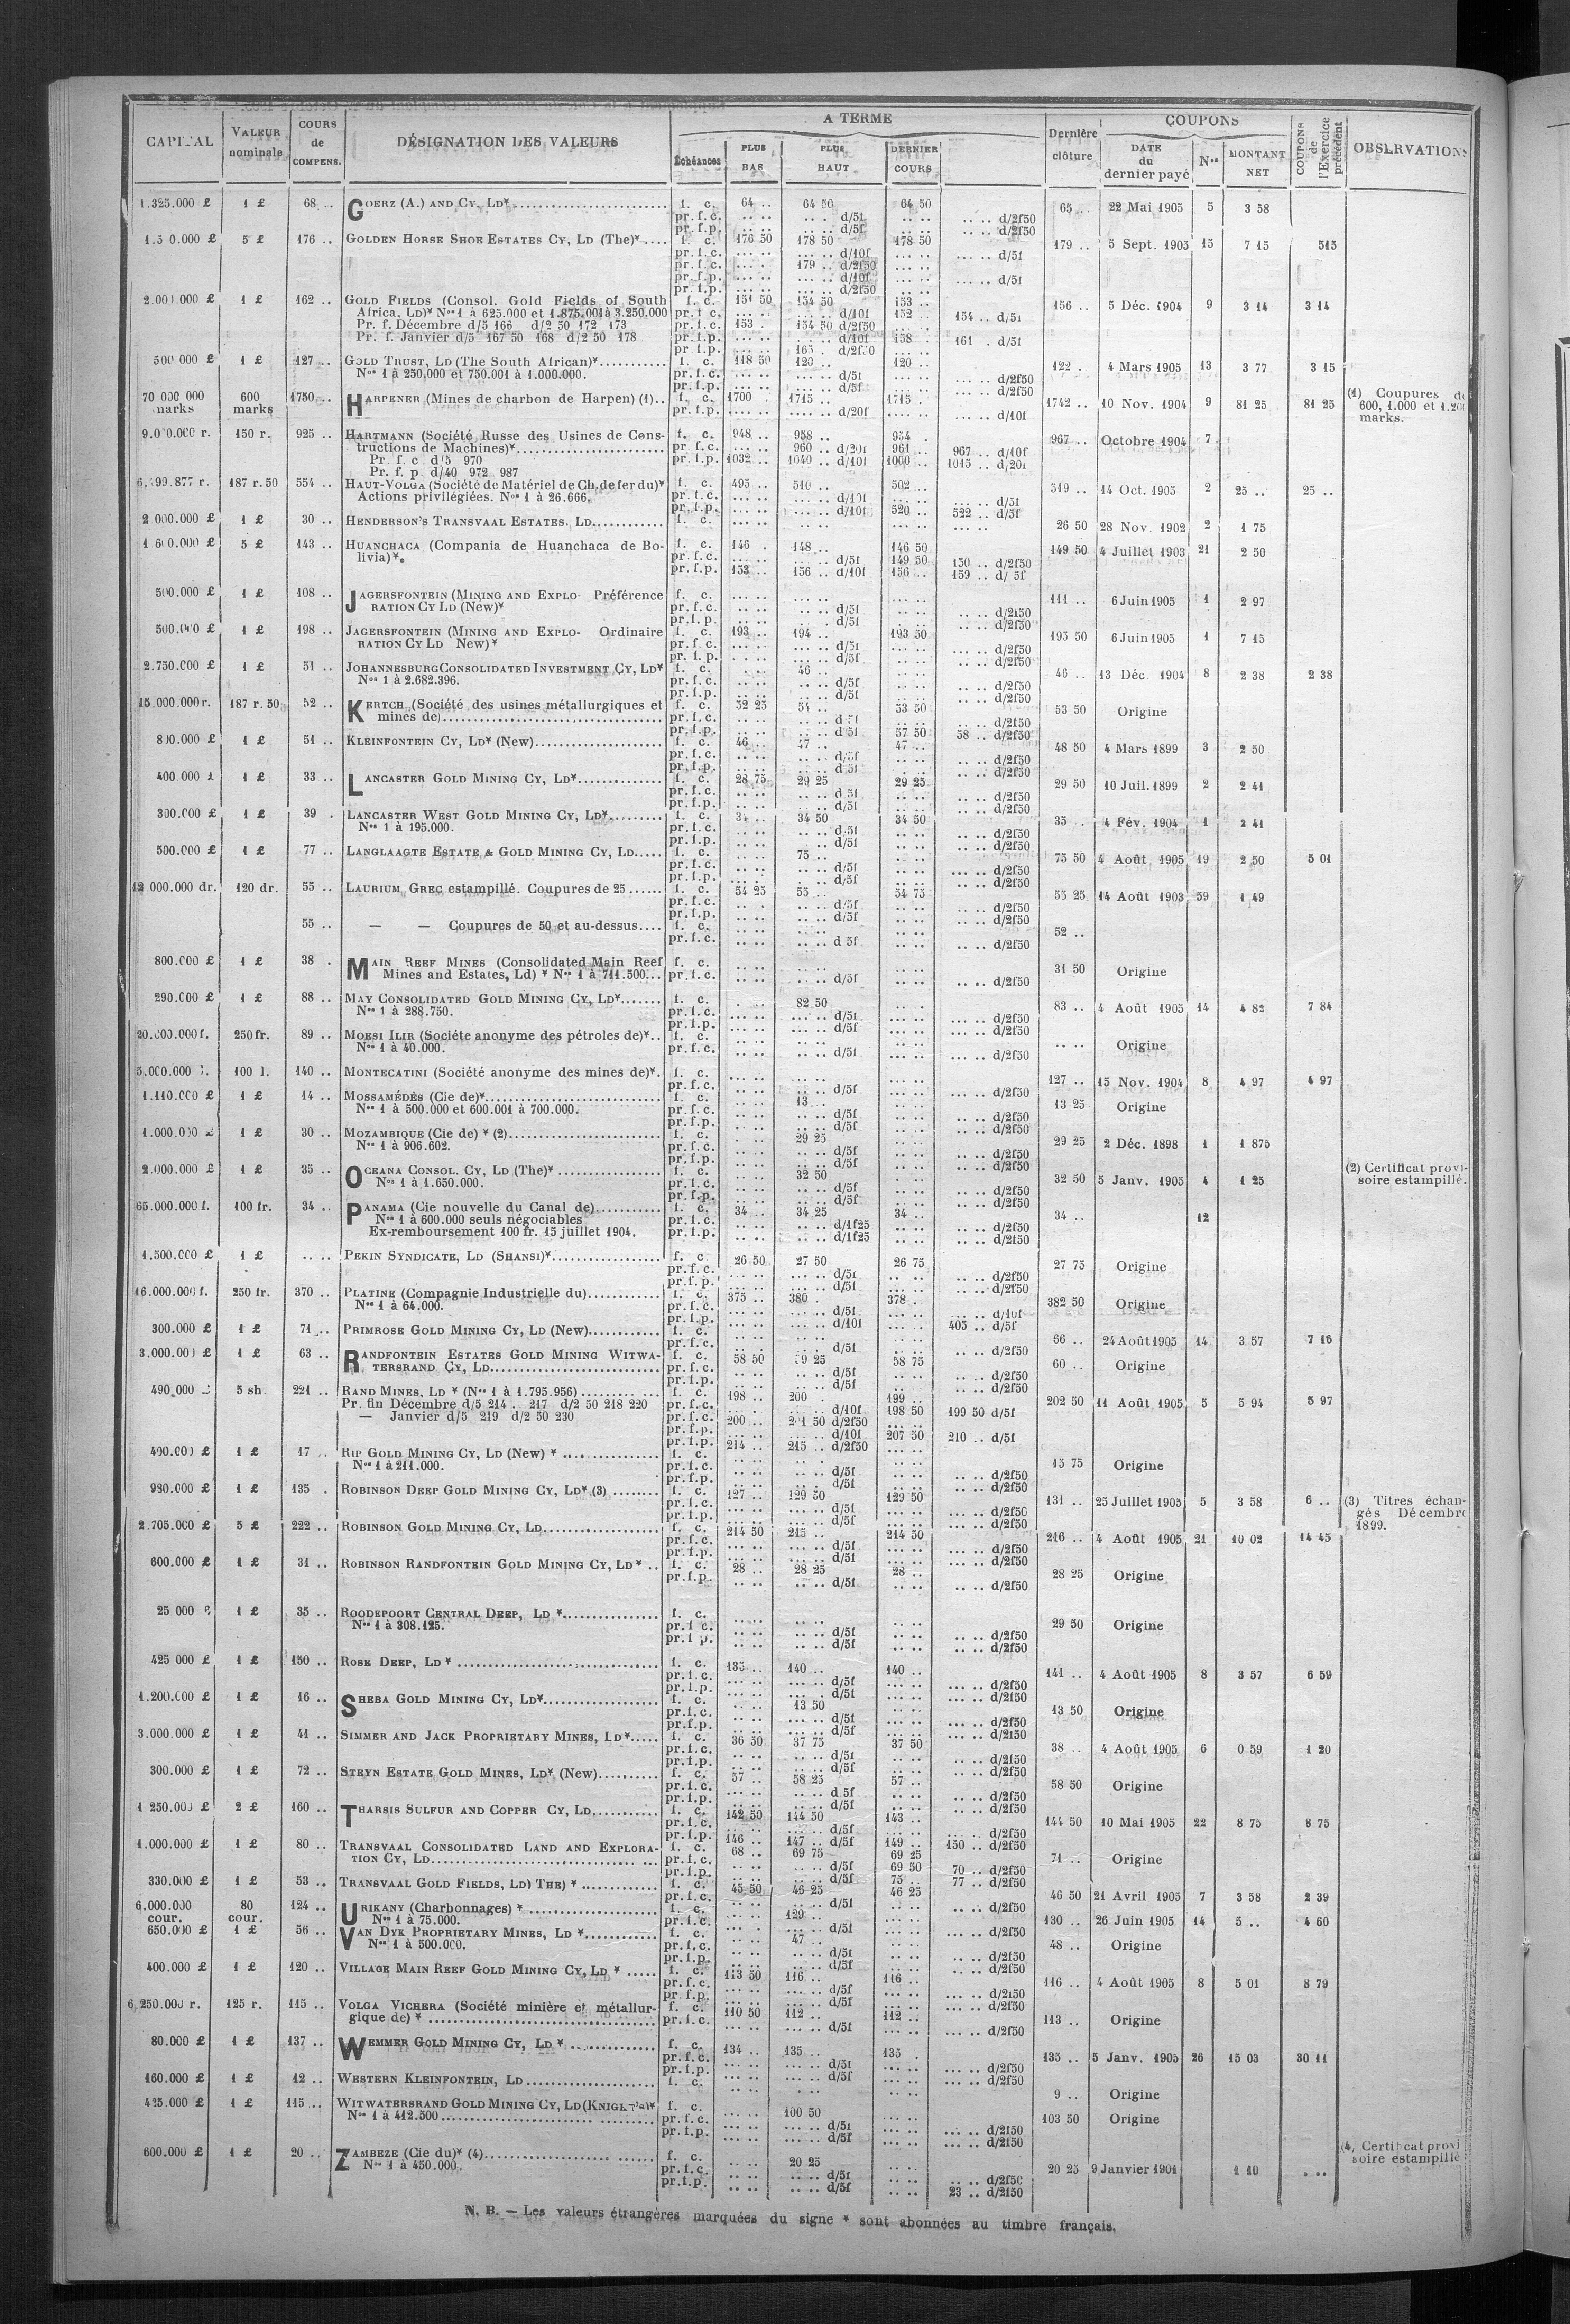 CAPITAL | VALEUR nominale | COURS de COMPENS. | DÉSIGNATION DES VALEURS | A TERME | Échéances | PLUS BAS | PLUS HAUT | DERNIER COURS | Dernière clôture | COUPONS | DATE du dernier payé | Nos | MONTANT NET | COUPONS de l'Exercice précédent | OBSERVATIONS
1.325.000 £ 1 £ 68 .. GOERZ (A.) AND CY, LD* f. c. 64 .. 64 50 64 50 65 .. 22 Mai 1905 5 3 58
pr. f. c. d/5f d/2f50
pr. f. p. d/5f d/2f50
5 £ 176 .. GOLDEN HORSE SHOE ESTATES CY, LD (The)* f. c. 176 50 178 50 178 50 179 .. 5 Sept. 1905 15 7 15 515
pr. f. c. d/10f d/5f
pr. f. c. 179 .. d/2f50
pr. f. p. d/10f d/5f
pr. f. p. d/2f50
2.000.000 £ 1 £ 162 .. GOLD FIELDS (Consol. Gold Fields of South f. c. 151 50 154 50 153 .. 156 .. 5 Déc. 1904 9 3 14 3 14
Africa, LD)* Nos 1 à 625.000 et 1.875.001 à 3.250.000 pr. f. c. d/10f 152 .. 154 .. d/5f
Pr. f. Décembre d/5 166 d/2 50 172 173 pr. f. c. 153 . 154 50 d/2f50
Pr. f. Janvier d/5 167 50 168 d/2 50 178 pr. f. p. d/10f 158 . 161 . d/5f
pr. f. p. 165 . d/2f50
500 000 £ 1 £ 127 .. GOLD TRUST, LD (The South African)* f. c. 118 50 120 .. 120 .. 122 . 4 Mars 1905 13 3 77 3 15
Nos 1 à 250,000 et 750.001 à 1.000.000. pr. f. c. d/5f d/2f50
pr. f. p. d/5f d/2f50
70 000 000 marks 600 marks 1750 .. HARPENER (Mines de charbon de Harpen) (1).. f. c. 1700 . 1715 .. 1715 . 1742 .. 10 Nov. 1904 9 81 25 81 25 (1) Coupures de 600, 1.000 et 1.200 marks.
pr. f. p. d/20f d/10f
9.000.000 r. 150 r. 925 .. HARTMANN (Société Russe des Usines de Cons- f. c. 948 .. 958 .. 954 . 967 .. Octobre 1904 7
tructions de Machines)* pr. f. c. 960 .. d/20f 961 .. 967 .. d/10f
Pr. f. c d/5 970 pr. f. p. 1032 .. 1040 .. d/40f 1000 .. 1015 .. d/20f
Pr. f. p. d/40 972 987
187 r. 50 554 .. HAUT-VOLGA (Société de Matériel de Ch. de fer du)* f. c. 495 .. 510 .. 502 .. 519 .. 14 Oct. 1905 2 25 .. 25 ..
Actions privilégiées. Nos 1 à 26.666. pr. f. c. d/10f d/5f
pr. f. p. d/10f 520 .. 522 .. d/5f
2 000.000 £ 1 £ 30 .. HENDERSON'S TRANSVAAL ESTATES. LD f. c. 26 50 28 Nov. 1902 2 1 75
1 600.000 £ 5 £ 143 .. HUANCHACA (Compania de Huanchaca de Bo- f. c. 146 . 148 .. 146 50 149 50 4 Juillet 1903 21 2 50
livia)*. pr. f. c. d/5f 149 50 150 .. d/2f50
pr. f. p. 153 .. 156 .. d/10f 156 .. 159 .. d/ 5f
500.000 £ 1 £ 108 .. JAGERSFONTEIN (MINING AND EXPLO- Préférence f. c. 111 .. 6 Juin 1905 1 2 97
RATION CY LD (New)* pr. f. c. d/5f d/2f50
pr. f. p. d/5f d/2f50
500.000 £ 1 £ 198 .. JAGERSFONTEIN (MINING AND EXPLO- Ordinaire f. c. 193 .. 194 .. 193 50 195 50 6 Juin 1905 1 7 15
RATION CY LD New)* pr. f. c. d/5f d/2f50
pr. f. p. d/5f d/2f50
2.750.000 £ 1 £ 51 .. JOHANNESBURG CONSOLIDATED INVESTMENT CY, LD* f. c. 46 .. 46 .. 13 Déc. 1904 8 2 38 2 38
Nos 1 à 2.682.396. pr. f. c. d/5f d/2f50
pr. f. p. d/5f d/2f50
15.000.000 r. 187 r. 50 52 .. KERTCH (Société des usines métallurgiques et f. c. 52 25 54 .. 53 50 53 50 Origine
mines de) pr. f. c. d/5f d/2f50
pr. f. p. d/5f 57 50 58 .. d/2f50
800.000 £ 1 £ 51 .. KLEINFONTEIN CY, LD* (New) f. c. 46 .. 47 .. 47 .. 48 50 4 Mars 1899 3 2 50
pr. f. c. d/5f d/2f50
pr. f. p. d/5f d/2f50
400.000 £ 1 £ 33 .. LANCASTER GOLD MINING CY, LD* f. c. 28 75 29 25 29 25 29 50 10 Juil. 1899 2 2 41
pr. f. c. d/5f d/2f50
pr. f. p. d/5f d/2f50
300.000 £ 1 £ 39 . LANCASTER WEST GOLD MINING CY, LD* f. c. 34 .. 34 50 34 50 35 .. 4 Fév. 1904 1 2 41
Nos 1 à 195.000. pr. f. c. d/5f d/2f50
pr. f. p. d/5f d/2f50
500.000 £ 1 £ 77 .. LANGLAAGTE ESTATE & GOLD MINING CY, LD f. c. 75 .. 75 50 4 Août 1905 19 2 50 5 01
pr. f. c. d/5f d/2f50
pr. f. p. d/5f d/2f50
12 000.000 dr. 120 dr. 55 .. LAURIUM GREC estampillé. Coupures de 25 f. c. 54 25 55 .. 54 75 55 25 14 Août 1903 59 1 49
pr. f. c. d/5f d/2f50
pr. f. p. d/5f d/2f50
55 .. — — Coupures de 50 et au-dessus f. c. 52 ..
pr. f. c. d/5f d/2f50
800.000 £ 1 £ 38 . MAIN REEF MINES (Consolidated Main Reef f. c. 31 50 Origine
Mines and Estates, Ld) * Nos 1 à 711.500 pr. f. c. d/5f d/2f50
290.000 £ 1 £ 88 .. MAY CONSOLIDATED GOLD MINING CY, LD* f. c. 82 50 83 .. 4 Août 1905 14 4 82 7 84
Nos 1 à 288.750. pr. f. c. d/5f d/2f50
pr. f. p. d/5f d/2f50
20.000.000 f. 250 fr. 89 .. MOESI ILIR (Société anonyme des pétroles de)* f. c. Origine
Nos 1 à 40.000. pr. f. c. d/5f d/2f50
5.000.000 l. 100 l. 140 .. MONTECATINI (Société anonyme des mines de)*. f. c. 127 .. 15 Nov. 1904 8 4 97 4 97
pr. f. c. d/5f d/2f50
1.110.000 £ 1 £ 14 .. MOSSAMÉDÈS (Cie de)* f. c. 13 .. 13 25 Origine
Nos 1 à 500.000 et 600.001 à 700.000. pr. f. c. d/5f d/2f50
pr. f. p. d/5f d/2f50
1.000.000 £ 1 £ 30 .. MOZAMBIQUE (Cie de) * (2) f. c. 29 25 29 25 2 Déc. 1898 1 1 875
Nos 1 à 906.602. pr. f. c. d/5f d/2f50
pr. f. p. d/5f d/2f50
2.000.000 £ 1 £ 35 .. OCEANA CONSOL. CY, LD (The)* f. c. 32 50 32 50 5 Janv. 1905 4 1 25 (2) Certificat provi-
Nos 1 à 1.650.000. pr. f. c. d/5f d/2f50 soire estampillé.
pr. f. p. d/5f d/2f50
65.000.000 f. 100 fr. 34 .. PANAMA (Cie nouvelle du Canal de) f. c. 34 .. 34 25 34 .. 34 .. 12
Nos 1 à 600.000 seuls négociables pr. f. c. d/1f25 d/2f50
Ex-remboursement 100 fr. 15 juillet 1904. pr. f. p. d/1f25 d/2f50
1.500.000 £ 1 £ .. .. PEKIN SYNDICATE, LD (SHANSI)* f. c 26 50 27 50 26 75 27 75 Origine
pr. f. c. d/5f d/2f50
pr. f. p. d/5f d/2f50
16.000.000 f. 250 fr. 370 .. PLATINE (Compagnie Industrielle du) f. c. 375 .. 380 . 378 . 382 50 Origine
Nos 1 à 64.000. pr. f. c. d/5f d/10f
pr. f. p. d/10f 405 .. d/5f
300.000 £ 1 £ 71 .. PRIMROSE GOLD MINING CY, LD (New) f. c. 66 .. 24 Août 1905 14 3 57 7 16
pr. f. c. d/5f d/2f50
3.000.000 £ 1 £ 63 .. RANDFONTEIN ESTATES GOLD MINING WITWA- f. c. 58 50 59 25 58 75 60 .. Origine
TERSRAND CY, LD pr. f. c. d/5f d/2f50
pr. f. p. d/5f d/2f50
490.000 £ 5 sh. 221 .. RAND MINES, LD * (Nos 1 à 1.795.956) f. c. 198 .. 200 . 199 .. 202 50 11 Août 1905 5 5 94 5 97
Pr. fin Décembre d/5 214 . 217 d/2 50 218 220 pr. f. c. d/10f 198 50 199 50 d/5f
— Janvier d/5 219 d/2 50 230 pr. f. c. 200 .. 201 50 d/2f50
pr. f. p. d/10f 207 50 210 .. d/5f
pr. f. p. 214 .. 215 .. d/2f50
400.000 £ 1 £ 17 .. RIP GOLD MINING CY, LD (New) * f. c. 15 75 Origine
Nos 1 à 211.000. pr. f. c. d/5f d/2f50
pr. f. p. d/5f d/2f50
980.000 £ 1 £ 135 . ROBINSON DEEP GOLD MINING CY, LD* (3) f. c. 127 .. 129 50 129 50 131 .. 25 Juillet 1905 5 3 58 6 .. (3) Titres échan-
pr. f. c. d/5f d/2f50 gés Décembre
pr. f. p. d/5f d/2f50 1899.
2.705.000 £ 5 £ 222 .. ROBINSON GOLD MINING CY, LD f. c. 214 50 215 .. 214 50 216 .. 4 Août 1905 21 10 02 14 45
pr. f. c. d/5f d/2f50
pr. f. p. d/5f d/2f50
600.000 £ 1 £ 31 .. ROBINSON RANDFONTEIN GOLD MINING CY, LD* .. f. c. 28 .. 28 25 28 .. 28 25 Origine
pr. f. p. d/5f d/2f50
25 000 £ 1 £ 35 .. ROODEPOORT CENTRAL DEEP, LD * f. c. 29 50 Origine
Nos 1 à 308.125. pr. f. c. d/5f d/2f50
pr. f. p. d/5f d/2f50
425 000 £ 1 £ 150 .. ROSE DEEP, LD * f. c. 135 .. 140 .. 140 .. 141 .. 4 Août 1905 8 3 57 6 59
pr. f. c. d/5f d/2f50
pr. f. p. d/5f d/2f50
1.200.000 £ 1 £ 16 .. SHEBA GOLD MINING CY, LD* f. c. 13 50 13 50 Origine
pr. f. c. d/5f d/2f50
pr. f. p. d/5f d/2f50
3.000.000 £ 1 £ 41 .. SIMMER AND JACK PROPRIETARY MINES, LD* f. c. 36 50 37 75 37 50 38 .. 4 Août 1905 6 0 59 1 20
pr. f. c. d/5f d/2f50
pr. f. p. d/5f d/2f50
300.000 £ 1 £ 72 .. STEYN ESTATE GOLD MINES, LD* (New) f. c. 57 .. 58 25 57 .. 58 50 Origine
pr. f. c. d/5f d/2f50
pr. f. p. d/5f d/2f50
1 250.000 £ 2 £ 160 .. THARSIS SULFUR AND COPPER CY, LD f. c. 142 50 144 50 143 .. 144 50 10 Mai 1905 22 8 75 8 75
pr. f. c. d/5f d/2f50
pr. f. p. 146 .. 147 .. d/5f 149 .. 150 .. d/2f50
1.000.000 £ 1 £ 80 .. TRANSVAAL CONSOLIDATED LAND AND EXPLORA- f. c. 68 .. 69 75 69 25 71 .. Origine
TION CY, LD pr. f. c. d/5f 69 50 70 .. d/2f50
pr. f. p. d/5f 75 .. 77 .. d/2f50
330.000 £ 1 £ 53 .. TRANSVAAL GOLD FIELDS, LD) THE) * f. c. 45 50 46 25 46 25 46 50 21 Avril 1905 7 3 58 2 39
pr. f. c. d/5f d/2f50
6.000.000 cour. 80 cour. 124 .. URIKANY (Charbonnages) * f. c. 129 .. 130 .. 26 Juin 1905 14 5 .. 4 60
Nos 1 à 75.000. pr. f. c. d/5f d/2f50
650.000 £ 1 £ 56 .. VAN DYK PROPRIETARY MINES, LD * f. c. 47 .. 48 .. Origine
Nos 1 à 500.000. pr. f. c. d/5f d/2f50
pr. f. p. d/5f d/2f50
400.000 £ 1 £ 120 .. VILLAGE MAIN REEF GOLD MINING CY, LD * f. c. 113 50 116 .. 116 .. 116 .. 4 Août 1905 8 5 01 8 79
pr. f. c. d/5f d/2f50
pr. f. p. d/5f d/2f50
6 250.000 r. 125 r. 115 .. VOLGA VICHERA (Société minière et métallur- f. c. 110 50 112 .. 112 .. 113 .. Origine
gique de) * pr. f. c. d/5f d/2f50
80.000 £ 1 £ 137 .. WEMMER GOLD MINING CY, LD * f. c. 134 .. 135 .. 135 . 135 .. 5 Janv. 1905 26 15 03 30 11
pr. f. c. d/5f d/2f50
pr. f. p. d/5f d/2f50
160.000 £ 1 £ 12 .. WESTERN KLEINFONTEIN, LD f. c. 9 .. Origine
425.000 £ 1 £ 115 .. WITWATERSRAND GOLD MINING CY, LD (KNIGHT'S)* f. c. 100 50 103 50 Origine
Nos 1 à 412.500 pr. f. c. d/5f d/2f50
pr. f. p. d/5f d/2f50
600.000 £ 1 £ 20 .. ZAMBEZE (Cie du)* (4) f. c. 20 25 20 25 9 Janvier 1901 1 10 (4) Certificat provi
Nos 1 à 450.000. pr. f. c. d/5f d/2f50 soire estampillé
pr. f. p. d/5f 23 .. d/2f50
N. B. — Les valeurs étrangères marquées du signe * sont abonnées au timbre français.